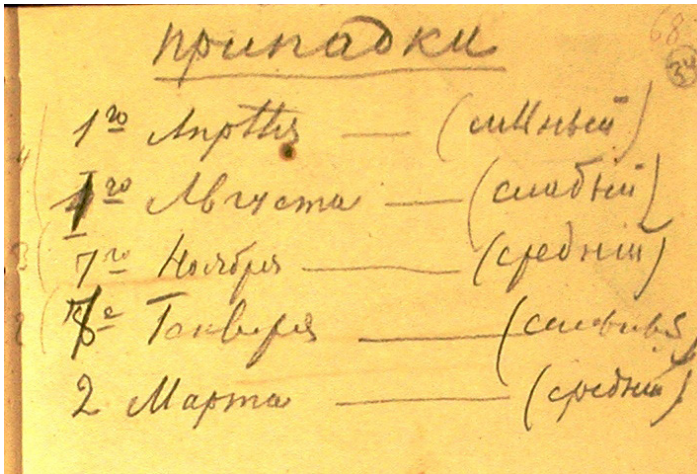 припадки
68
34
1го Апрѣля — (сильный)
1го Августа — (слабый)
7го Ноября — (средній)
8е Генваря — (сильный)
2 Марта — (средній)
4
3
2